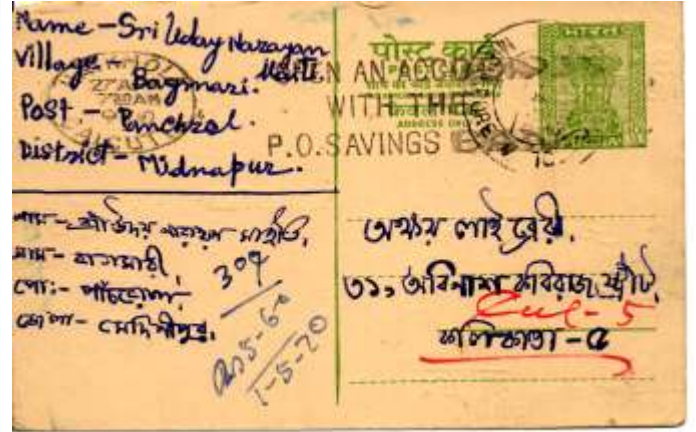 Name - Sri Uday Narayan
Maiti
Village - Bagmari.
Post - Panchrol.
District - Midnapur.
नাম - শ্রী উদয় নারায়ন মাইতি,
গ্রাম - বাগমারী,
পো: - পাঁচরোল,
জেলা - মেদিনীপুর.
309
1-5-70
पोस्ट कार्ड
ADDRESS ONLY
OPEN AN ACCOUNT
WITH THE
P.O. SAVINGS BANK
27 A
7 30 AM
भारत
অক্ষয় লাইব্রেরী.
৩১, অবিনাশ কবিরাজ স্ট্রীট,
Cul - 5
কলিকাতা - ৫